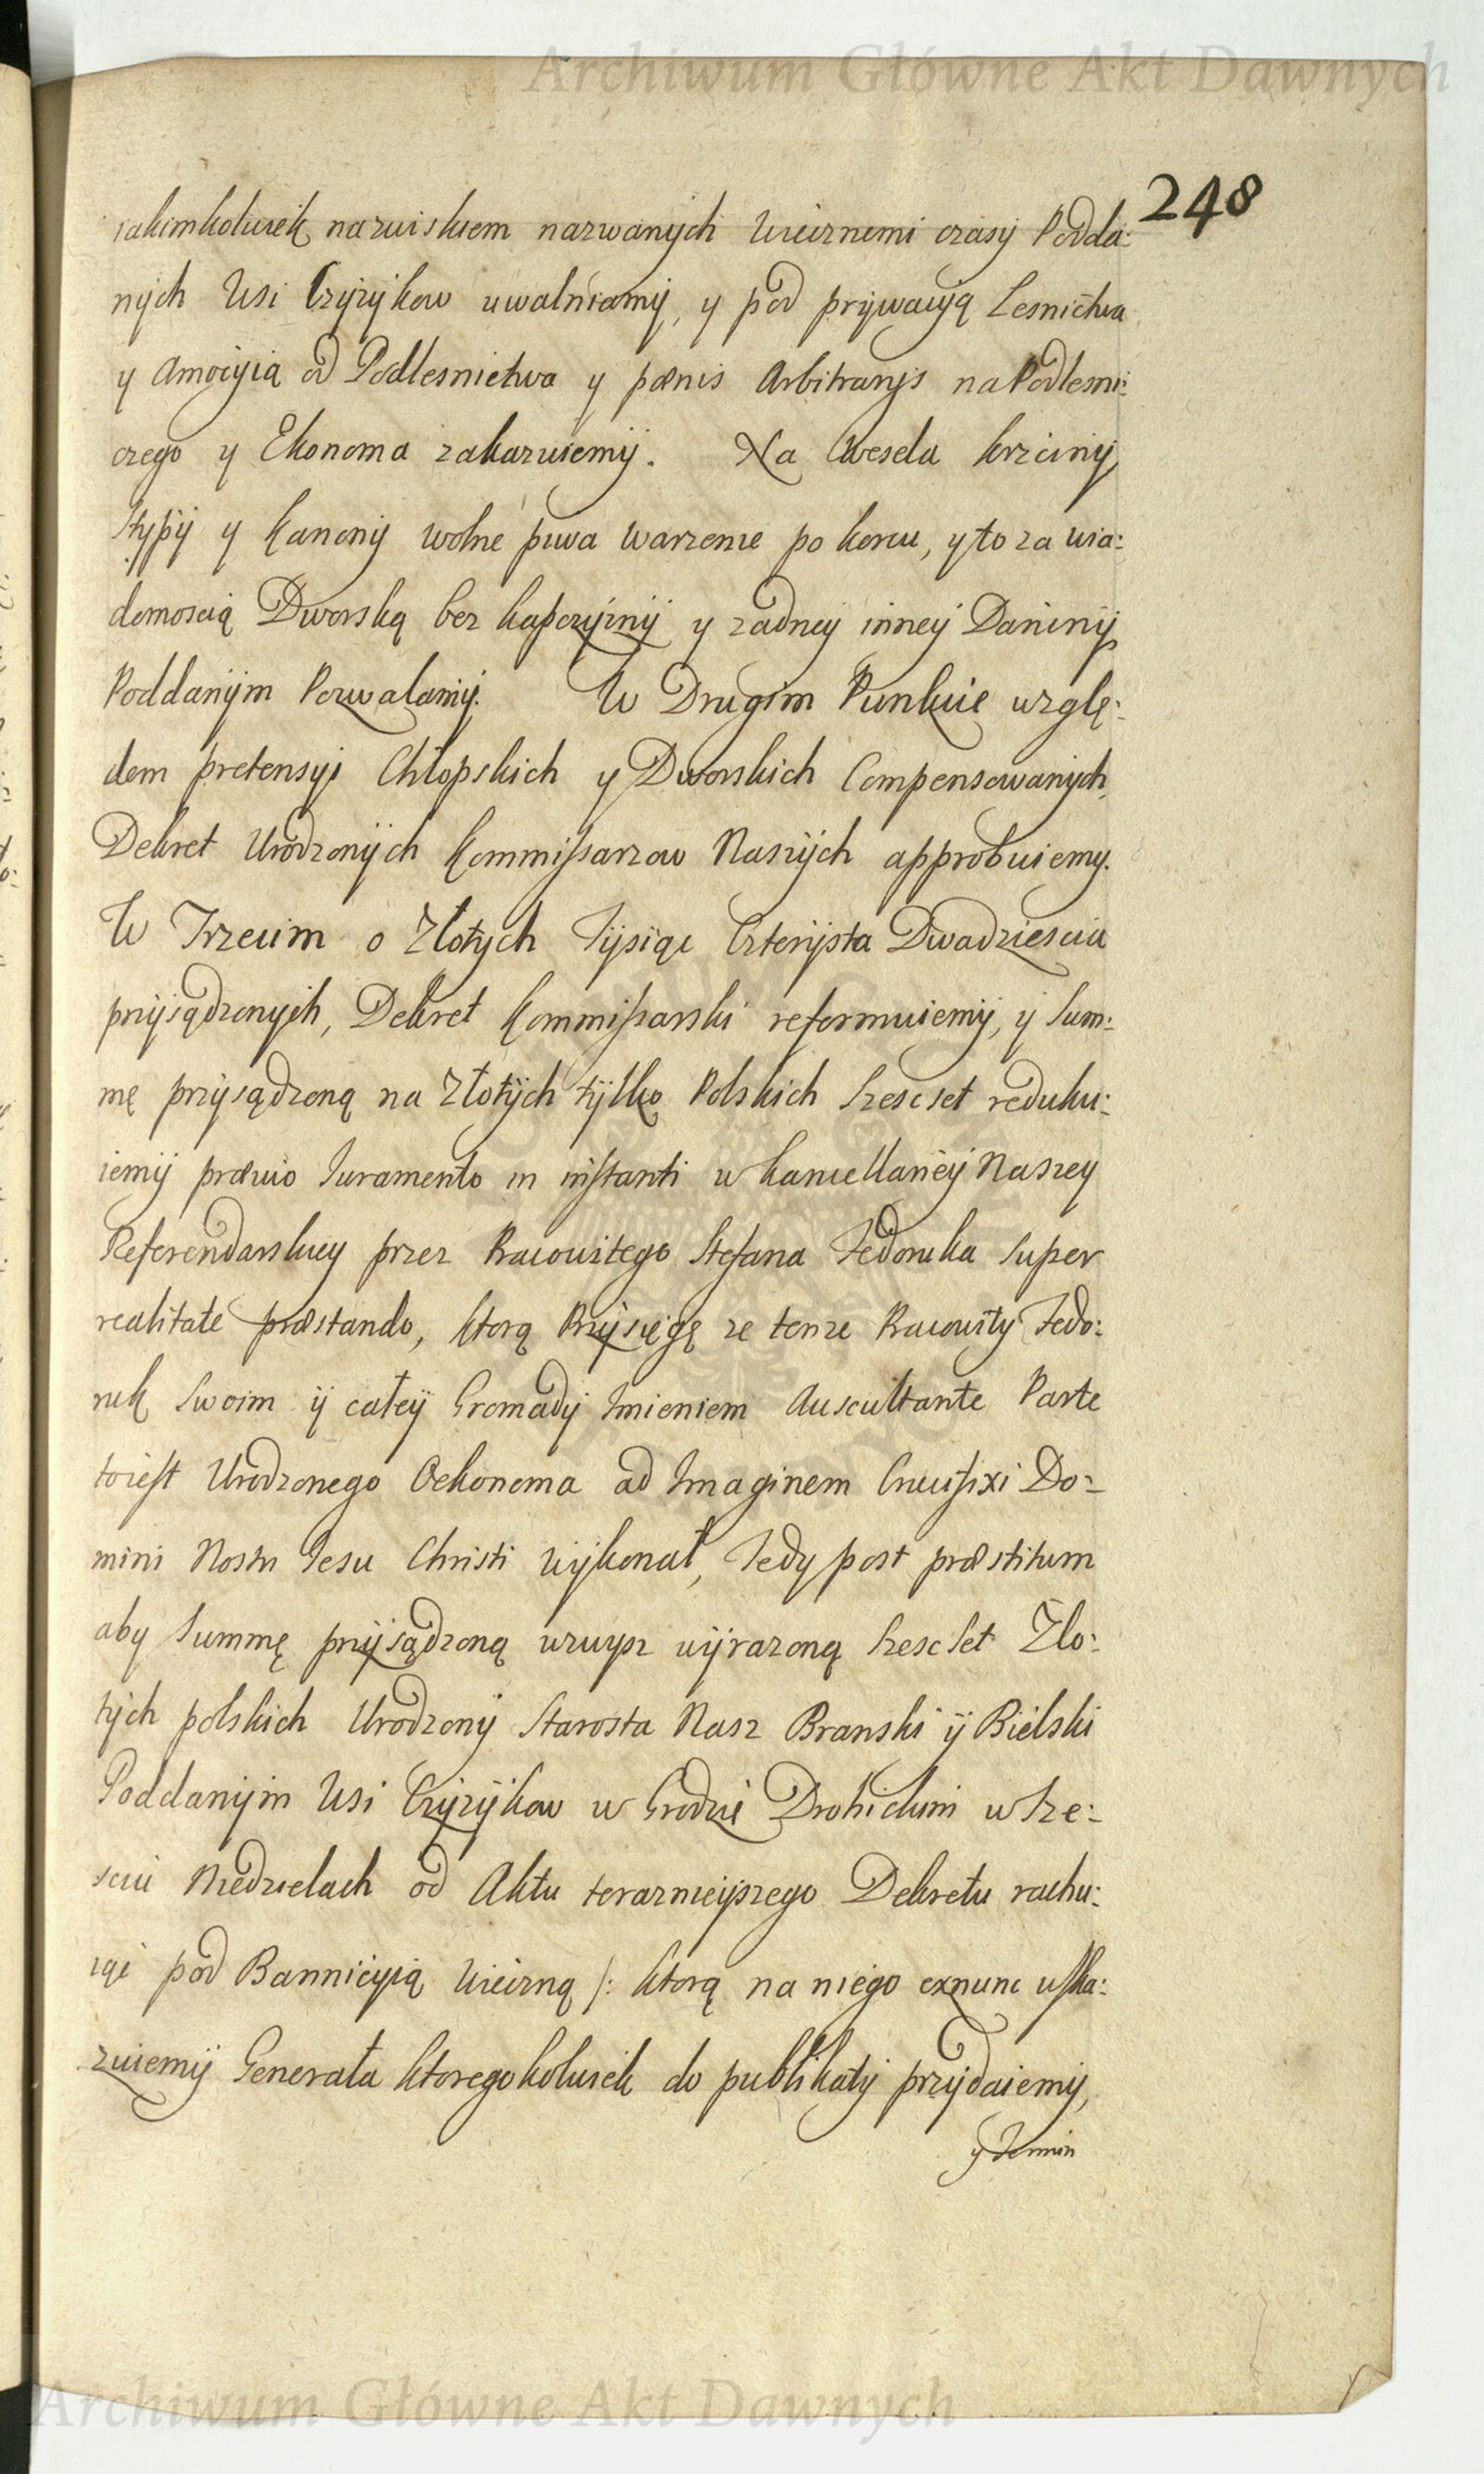 Archiwum Główne Akt Dawnych
248
iakimkolwiek nazwiskiem nazwanych wiecznemi czasy Podda:
nych Wsi Czyzykow uwalniamy, y pod prywacyą Lesnictwa
y Amocyią od Podlesnictwa y pœnis Arbitrarys na Podlesni:
czego y Ekonoma zakazuiemy. Na Wesela krzciny
stypy y Kanony wolne piwa warzenie po korcu, y to za wia:
domoscią Dworską bez kapczyzny y zadney inney Daniny
Poddanym Pozwalamy. W Drugim Punkcie wzglę:
dem pretensyi Chłopskich y Dworskich Compensowanych,
Dekret Urodzonych Kommissarzow Naszych approbuiemy.
W Trzecim o Złotych Tysiąc Czterysta Dwadziescia
przysądzonych, Dekret Kommissarski reformuiemy, y Sum:
mę przysądzoną na Złotych tylko Polskich Szescset reduku:
iemy prævio Juramento in instanti w Kancellaryi Naszey
Referendarskiey przez Pracowitego Stefana Fedoruka super
realitate præstando, ktorą Przysięgę ze tenze Pracowity Fedo:
ruk Swoim y całey Gromady Imieniem Auscultante Parte
toiest Urodzonego Oekonoma ad Imaginem Crucifixi Do:
mini Nostri Jesu Christi wykonał, Tedy post præstitum
aby Summę przysądzoną wzwysz wyrazoną Szescset Zło:
tych polskich Urodzony Starosta Nasz Branski y Bielski
Poddanym Wsi Czyzykow w Grodzie Drohickim w Sze:
sciu Niedzielach od Aktu teraznieyszego Dekretu rachu:
iąc pod Bannicyią wieczną /: ktorą na niego exnunc wska:
zuiemy Generała ktoregokolwiek do publikaty przydaiemy,
y Termin
Archiwum Główne Akt Dawnych